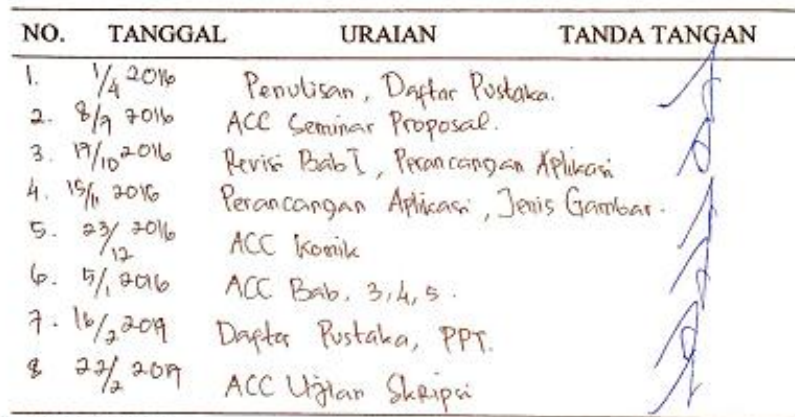 NO. TANGGAL URAIAN TANDA TANGAN
1. 1/4 2016 Penulisan, Daftar Pustaka.
2. 8/9 2016 ACC Seminar Proposal.
3. 19/10 2016 Revisi Bab I, Perancangan Aplikasi
4. 15/11 2016 Perancangan Aplikasi, Jenis Gambar.
5. 23/12 2016 ACC Komik
6. 5/1 2016 ACC Bab. 3,4,5.
7. 16/2 2017 Daftar Pustaka, PPT.
8 22/2 2017 ACC Ujian Skripsi